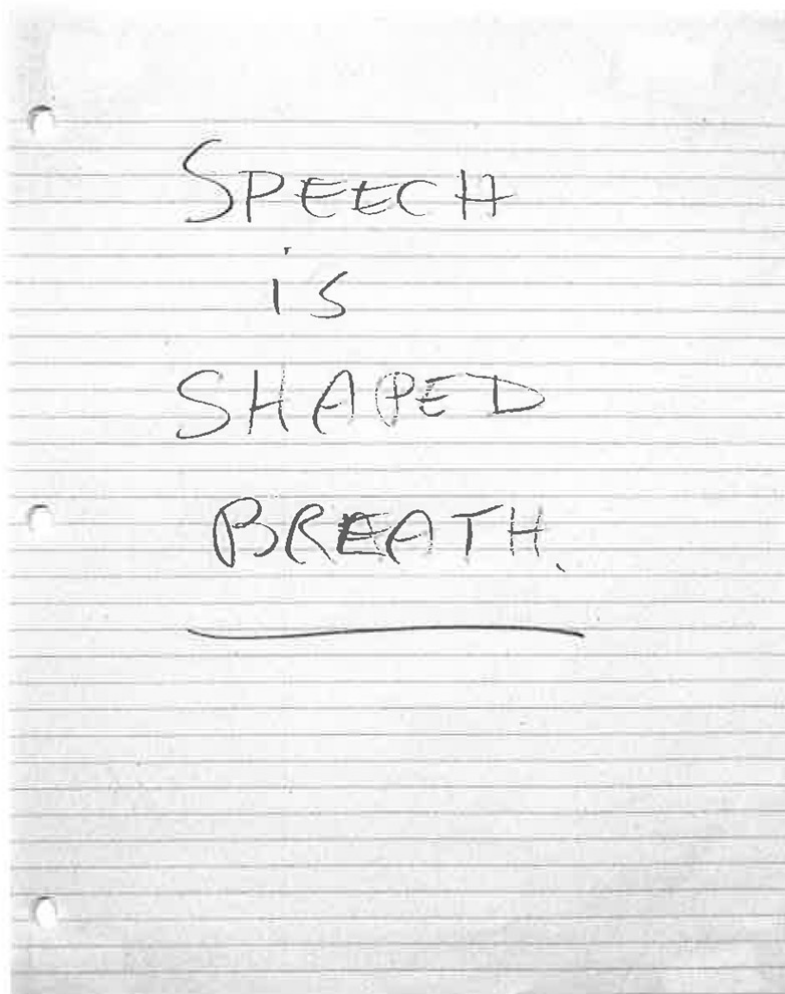 SPEECH
is
SHAPED
BREATH.